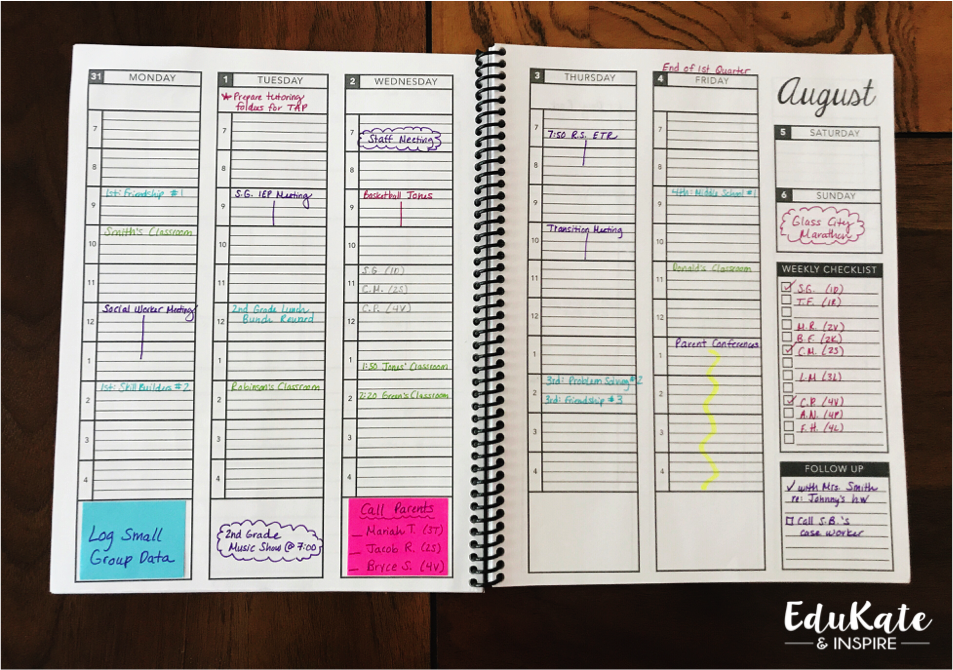 31 MONDAY
7
8
1st: Friendship #1
9
Smith's Classroom
10
11
Social Worker Meeting
12
1
1st: Skill Builders #2
2
3
4
Log Small
Group Data
1 TUESDAY
* Prepare tutoring
folders for TAP
7
8
S.G. IEP Meeting
9
10
11
2nd Grade Lunch
Bunch Reward
12
1
Robinson's Classroom
2
3
4
2nd Grade
Music Show @ 7:00
2 WEDNESDAY
7
Staff Meeting
8
Basketball Jones
9
10
S.G. (1D)
11 C.M. (2S)
C.P. (4V)
12
1
1:50 Jones' Classroom
2 2:20 Green's Classroom
3
4
Call Parents
_ Mariah T. (3T)
_ Jacob R. (2S)
_ Bryce S. (4V)
3 THURSDAY
7
7:50 R.S. ETR
8
9
Transition Meeting
10
11
12
1
3rd: Problem Solving #2
2 3rd: Friendship #3
3
4
End of 1st Quarter
4 FRIDAY
7
8
4th: Middle School #1
9
10
Donald's Classroom
11
12
Parent Conferences
1
2
3
4
August
5 SATURDAY
6 SUNDAY
Glass City
Marathon
WEEKLY CHECKLIST
S.G. (1D)
T.F. (1R)
M.R. (2V)
B.F. (2K)
C.M. (2S)
L.M (3L)
C.P. (4V)
A.N. (4P)
F.H. (4L)
FOLLOW UP
✓ with Mrs. Smith
re: Johnny's hw
☐ Call S.B.'s
case worker
EduKate
& INSPIRE